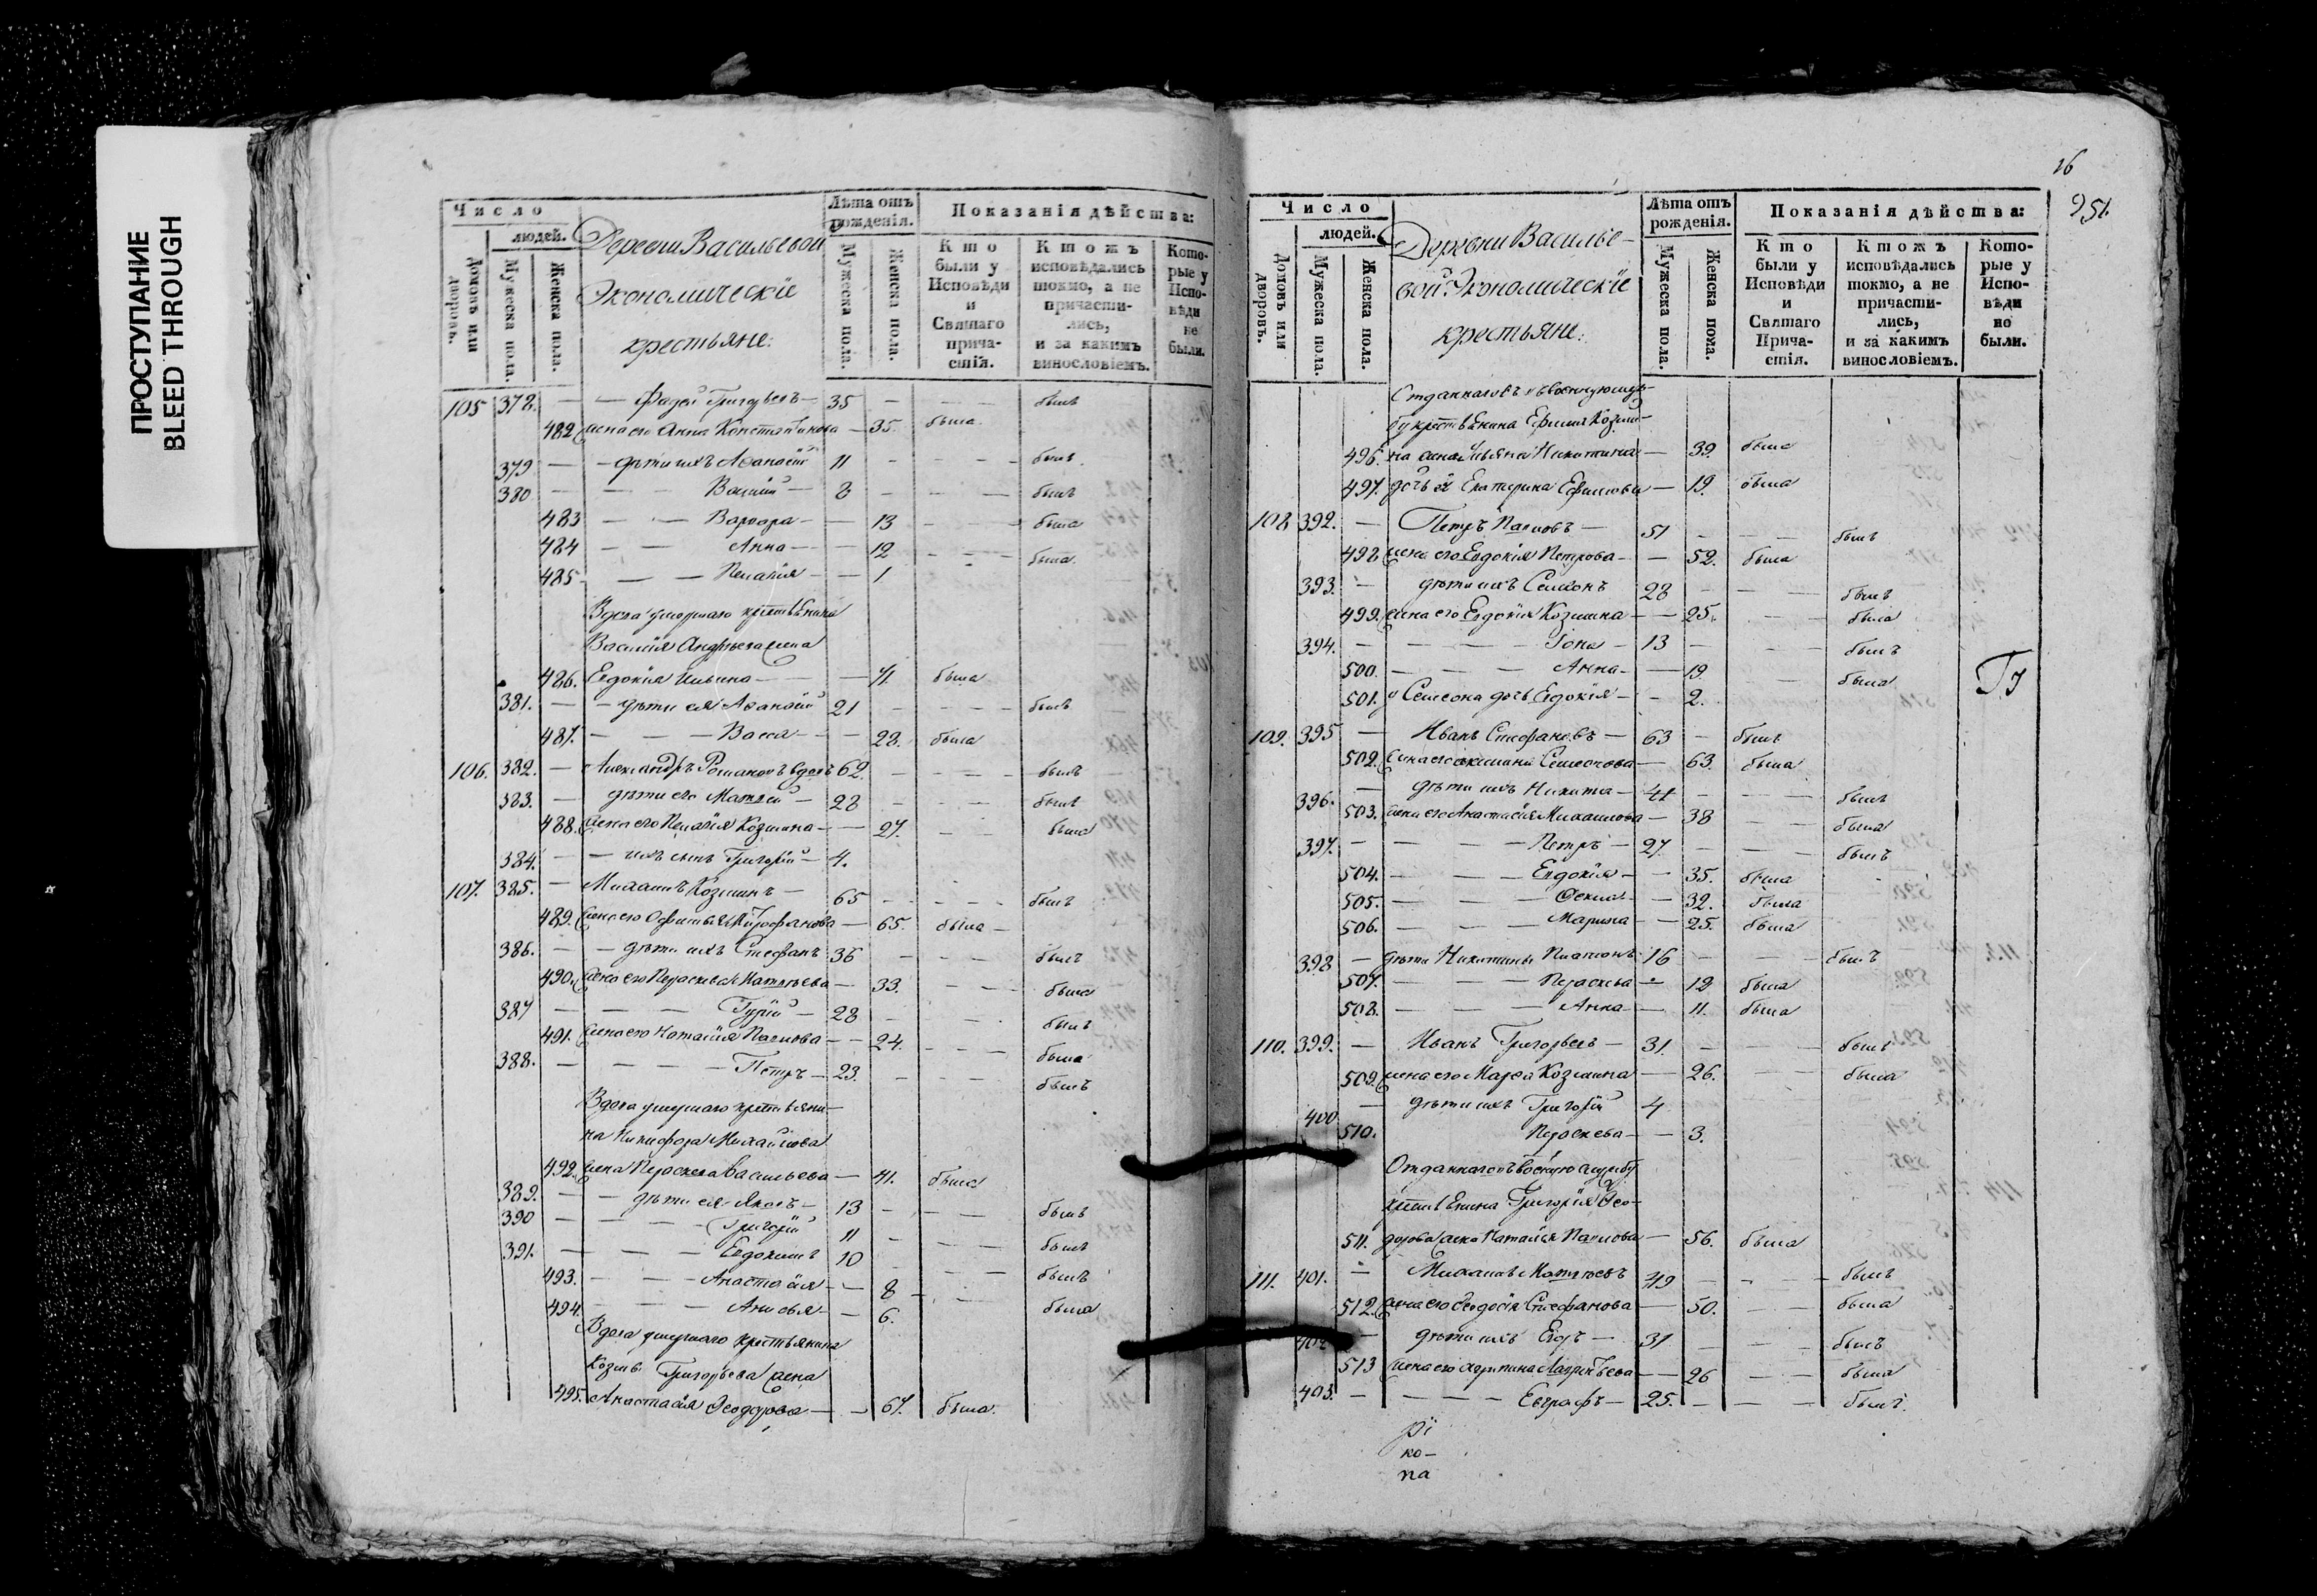 ПРОСТУПАНИЕ
BLEED THROUGH
Число
людей.
Домовъ или дворовъ.
Мужеска пола.
Женска пола.
Деревни Васильевой
Экономическіе
крестьяне:
Лѣта отъ рожденія.
Мужеска пола.
Женска пола.
Показанія дѣйства:
Кто были у Исповѣди и Святаго причастія.
Ктожъ исповѣдались токмо, а не причастились, и за какимъ винословіемъ.
Которые у Исповѣди не были.
105 378. — — Фадей Григорьевъ — 35 — — — былъ
482 жена его Анна Константинова — 35. была
379 — — дѣти ихъ Аѳанасій 11 — — — былъ
380 — — — Василій — 8 — — — былъ
483 — — Варвара — — 13 — — — была
484 — — Анна — — 12 — — — была
485 — — — Пелагія — — 1
Вдова умершаго крестьянина
Василія Андреева жена
486. Евдокія Ильина — — 41. была
381. — — дѣти ея Аѳанасій 21 — — — былъ
487. — — — Васса — — 22. была
106. 382. — Александръ Романовъ вдовъ 62. — — — былъ
383. — дѣти его Матвей — 28 — — — былъ
488. жена его Пелагія Козмина — — 27. — — была
384. — — ихъ сынъ Григорій — 4.
107. 385. — Михаилъ Козминъ — 65 — — — былъ
489. жена его Офимья Митрофанова — 65. была —
386. — — дѣти ихъ Стефанъ 36 — — — былъ
490. жена его Параскева Матвѣева — 33. — — — была
387 — — — Гурій — 28 — — былъ
491. жена его Наталія Павлова — — 24. — — — была
388. — — — — Петръ — 23. — — — былъ
Вдова умершаго крестьяни-
на Никифора Михайлова
492. жена Параскева Васильева — 41. была
389. — — дѣти ея Яковъ — 13 — — — былъ
390 — — — Григорій 11 — — — былъ
391. — — — Евдокимъ 10 — — былъ
493. — — — Анастасія — — 8 — — была
494. — — — Анисья — — 6.
Вдова умершаго крестьянина
Козмы Григорьева жена
495. Анастасія Ѳеодорова — — 67. была.
16
951.
Число
людей.
Домовъ или дворовъ.
Мужеска пола.
Женска пола.
Деревни Василье-
вой Экономическіе
крестьяне:
Лѣта отъ рожденія.
Мужеска пола.
Женска пола.
Показанія дѣйства:
Кто были у Исповѣди и Святаго Причастія.
Ктожъ исповѣдались токмо, а не причастились, и за какимъ винословіемъ.
Которые у Исповѣди не были.
Отданнаго въ военную служ-
бу крестьянина Ефима Козми-
496. на жена Ульяна Никитина — 39. была
497. дочь ея Екатерина Ефимова — 19. была
108 392. — Петръ Павловъ — 51 — — — былъ
498 жена его Евдокія Петрова — — 52. была
393. — дѣти ихъ Семіонъ 28 — — — былъ
499. жена его Евдокія Козмина — — 25. — — была
394. — — — — Іона — 13 — — — былъ
500. — — — Анна — — 19 — — была
501. у Семеона дочь Евдокія — — 2.
109. 395 — Иванъ Стефановъ — 63 — былъ
502. жена его Семеонова — 63. была
396. — дѣти ихъ Никита — 41 — — — былъ
503. жена его Анастасія Михаилова — 38 — — была
397. — — — — Петръ — 27. — — — былъ
504. — — — Евдокія — — 35. была
505. — — — Ѳекла — — 32. была
506. — — — Марина — — 25. была
398 — дѣти Никитины Платонъ 16 — — — былъ
507. — — — Параскева — — 12 была
508. — — — Анна — — 11. была
110. 399. — Иванъ Григорьевъ — 31. — — — былъ
509. жена его Марѳа Козмина — 26. — — была
400 — дѣти ихъ Григорій 4
510. Параскева — — 3.
Отданнаго въ военную службу
крестьянина Григорія Ѳео-
511. дорова жена Наталія Павлова — 56. была
111. 401. — Михаилъ Матвѣевъ 49 — — — былъ
512. жена его Ѳеодосія Стефанова — 50. — — была
402 — дѣти ихъ Егоръ — 31 — — — былъ
513 жена его Лаврентьева — — 26 — — была
403. — — — — Евграфъ — 25. — — — былъ
рі
ко-
па